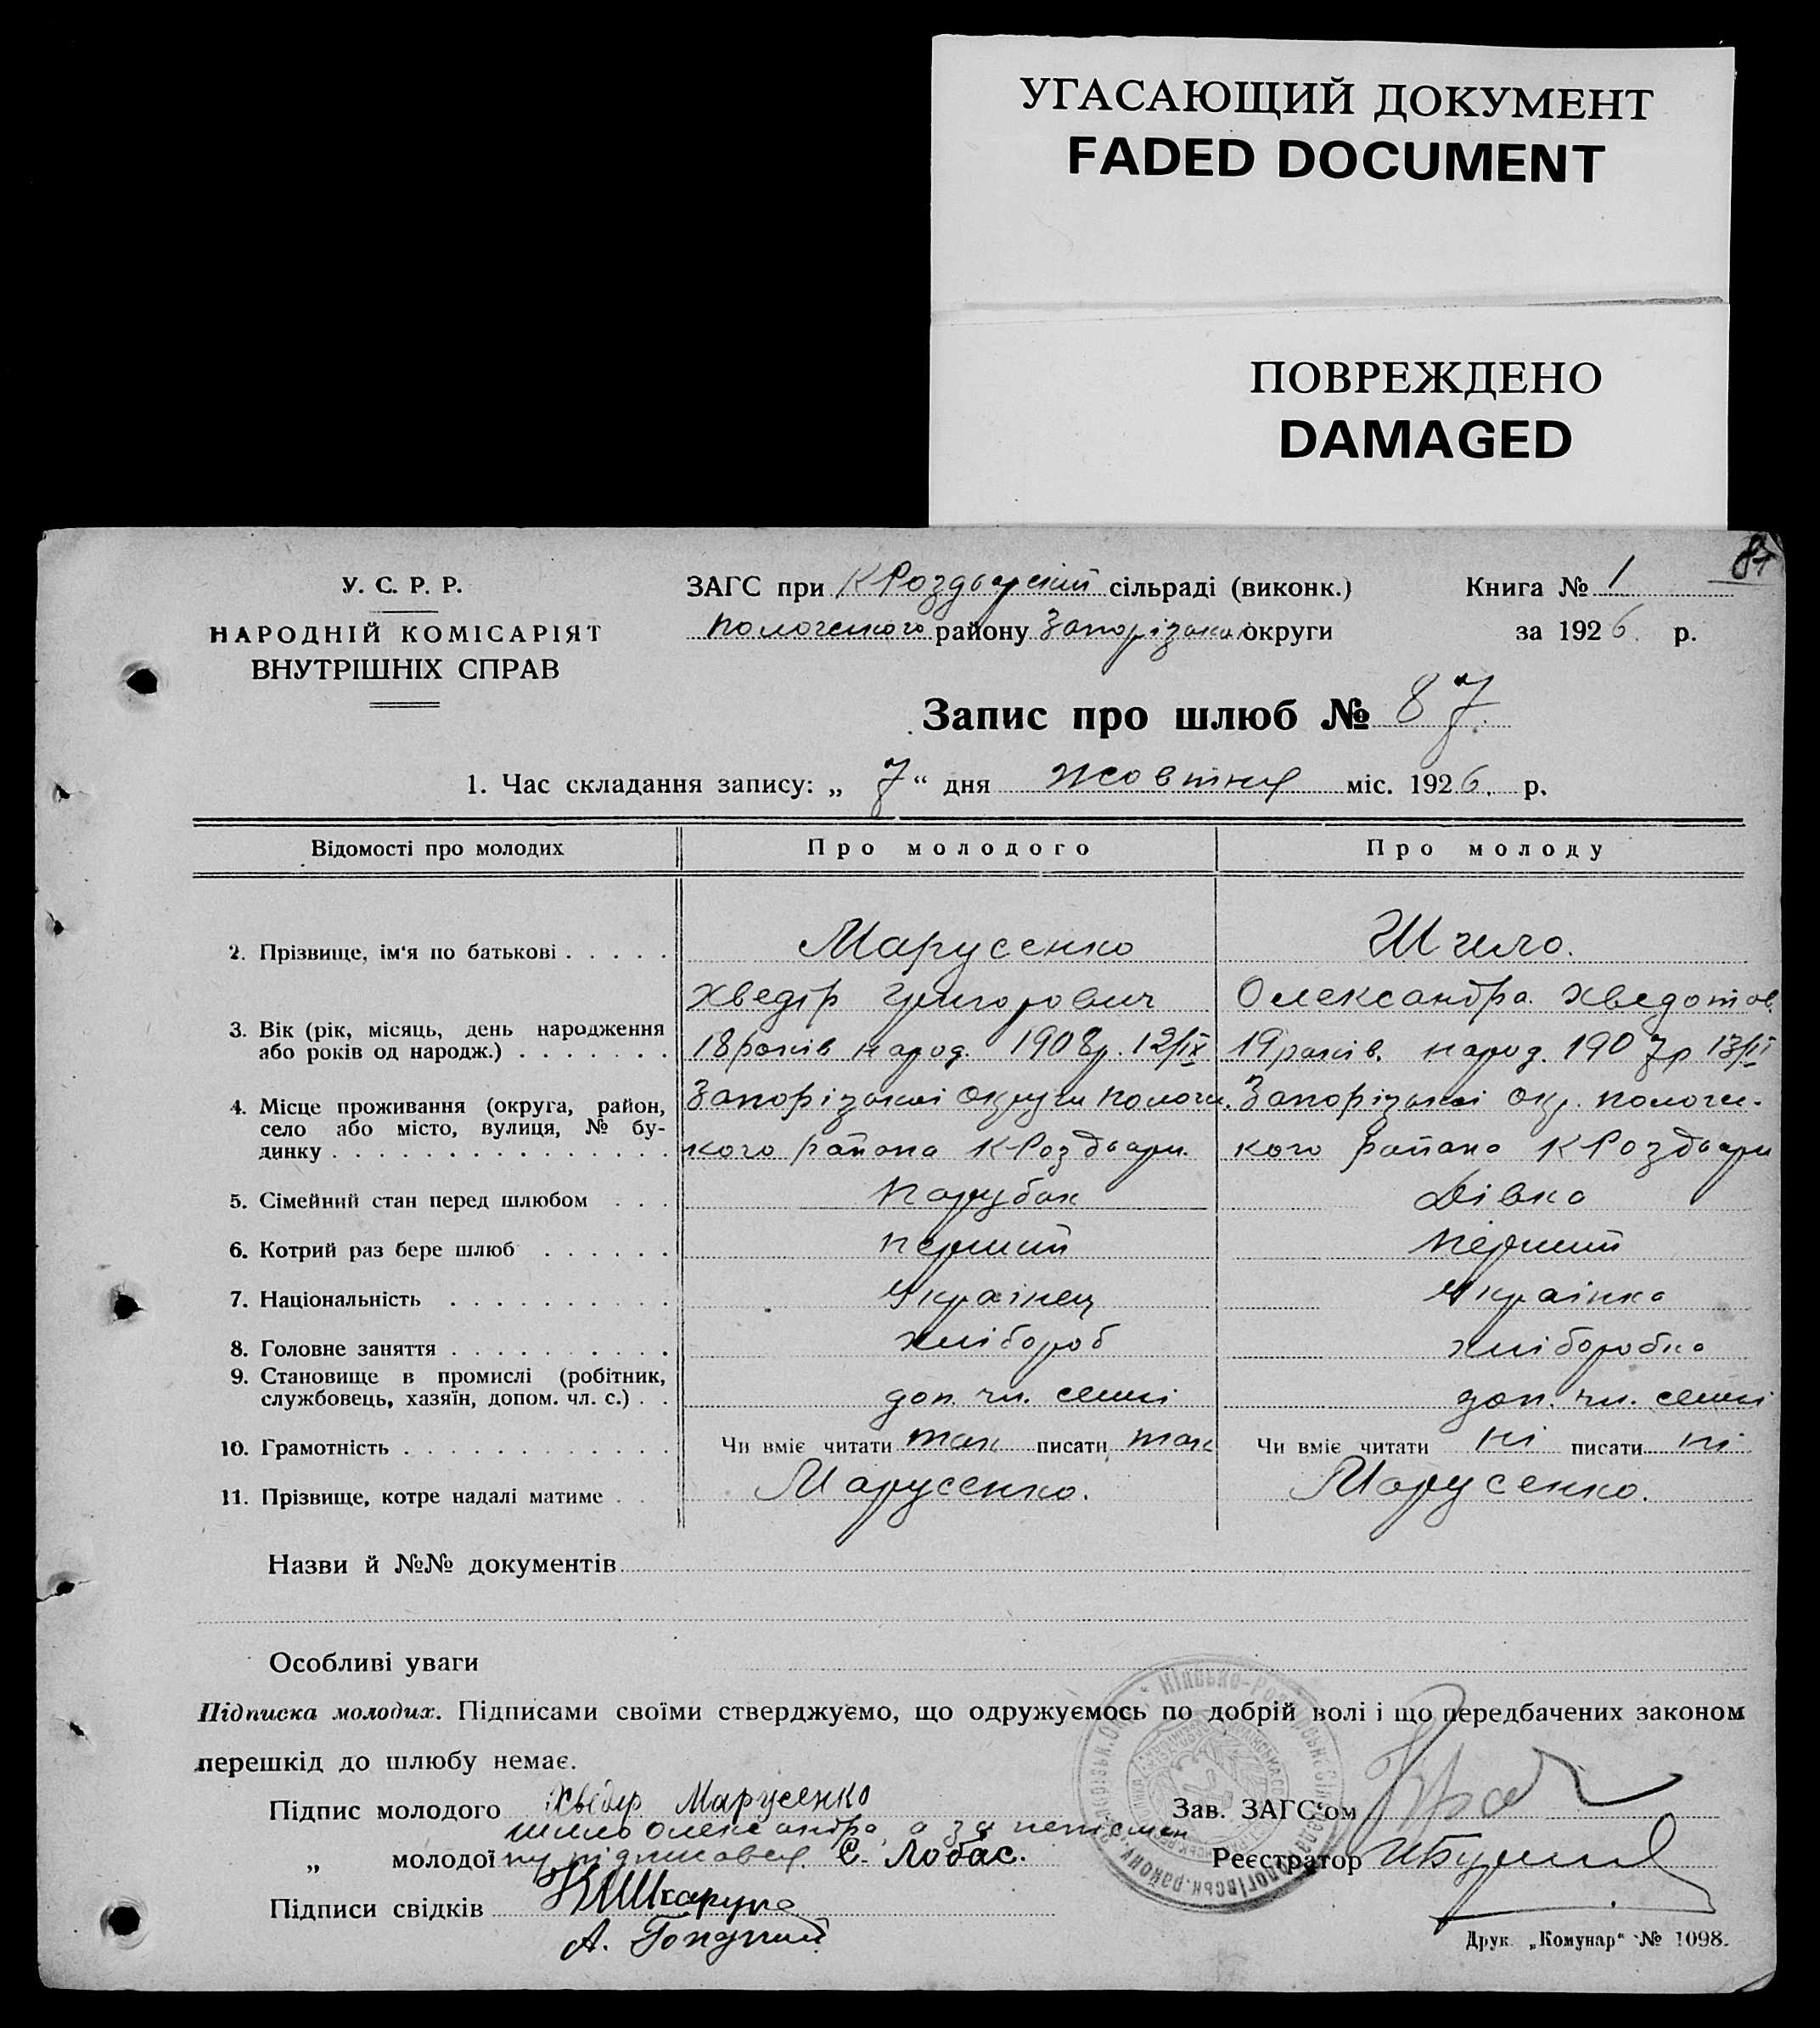 УГАСАЮЩИЙ ДОКУМЕНТ
FADED DOCUMENT
ПОВРЕЖДЕНО
DAMAGED
87
У. С. Р. Р.
НАРОДНІЙ КОМІСАРІЯТ
ВНУТРІШНІХ СПРАВ
ЗАГС при КРоздорский сільраді (виконк.)
Пологського району Запорізької округи
Книга № 1
за 1926 р.
Запис про шлюб № 87.
1. Час складання запису: „ 7 “ дня жовтня міс. 1926. р.
Відомості про молодих Про молодого Про молоду
2. Прізвище, ім‘я по батькові . . . . . Марусенко Шило.
Хведір Григорович Олександра Хведотов.
3. Вік (рік, місяць, день народження
або років од народж.) . . . . . . . 18 років народ. 1908р. 12/ІХ 19 років. народ. 1907р 13/
4. Місце проживання (округа, район, Запорізької Округи Пологи. Запорізької Окр. Пологи-
село або місто, вулиця, № бу-
динку . . . . . . . . . . . . . . . кого района КРоздори. кого района КРоздори
5. Сімейний стан перед шлюбом . . . Парубок Дівка
6. Котрий раз бере шлюб . . . . . . перший перший
7. Національність . . . . . . . . . . Українец Українка
8. Головне заняття . . . . . . . . . . хлібороб хліборобка
9. Становище в промислі (робітник,
службовець, хазяїн, допом. чл. с.) . . доп. чл. семьі доп. чл. семьі
10. Грамотність . . . . . . . . . . . . Чи вміє читати так писати так Чи вміє читати ні писати ні
11. Прізвище, котре надалі матиме . . Марусенко. Марусенко.
Назви й №№ документів
Особливі уваги
Підписка молодих. Підписами своїми стверджуємо, що одружуємось по добрій волі і що передбачених законом
перешкід до шлюбу немає.
Підпис молодого Хведір Марусенко
Шило Олександра, а за неписмен
„ молодої ну підписався Є. Лобас.
Підписи свідків Шкарупа
А.
Зав. ЗАГС‘ом
Реєстратор
Друк. „Комунар“ № 1098.